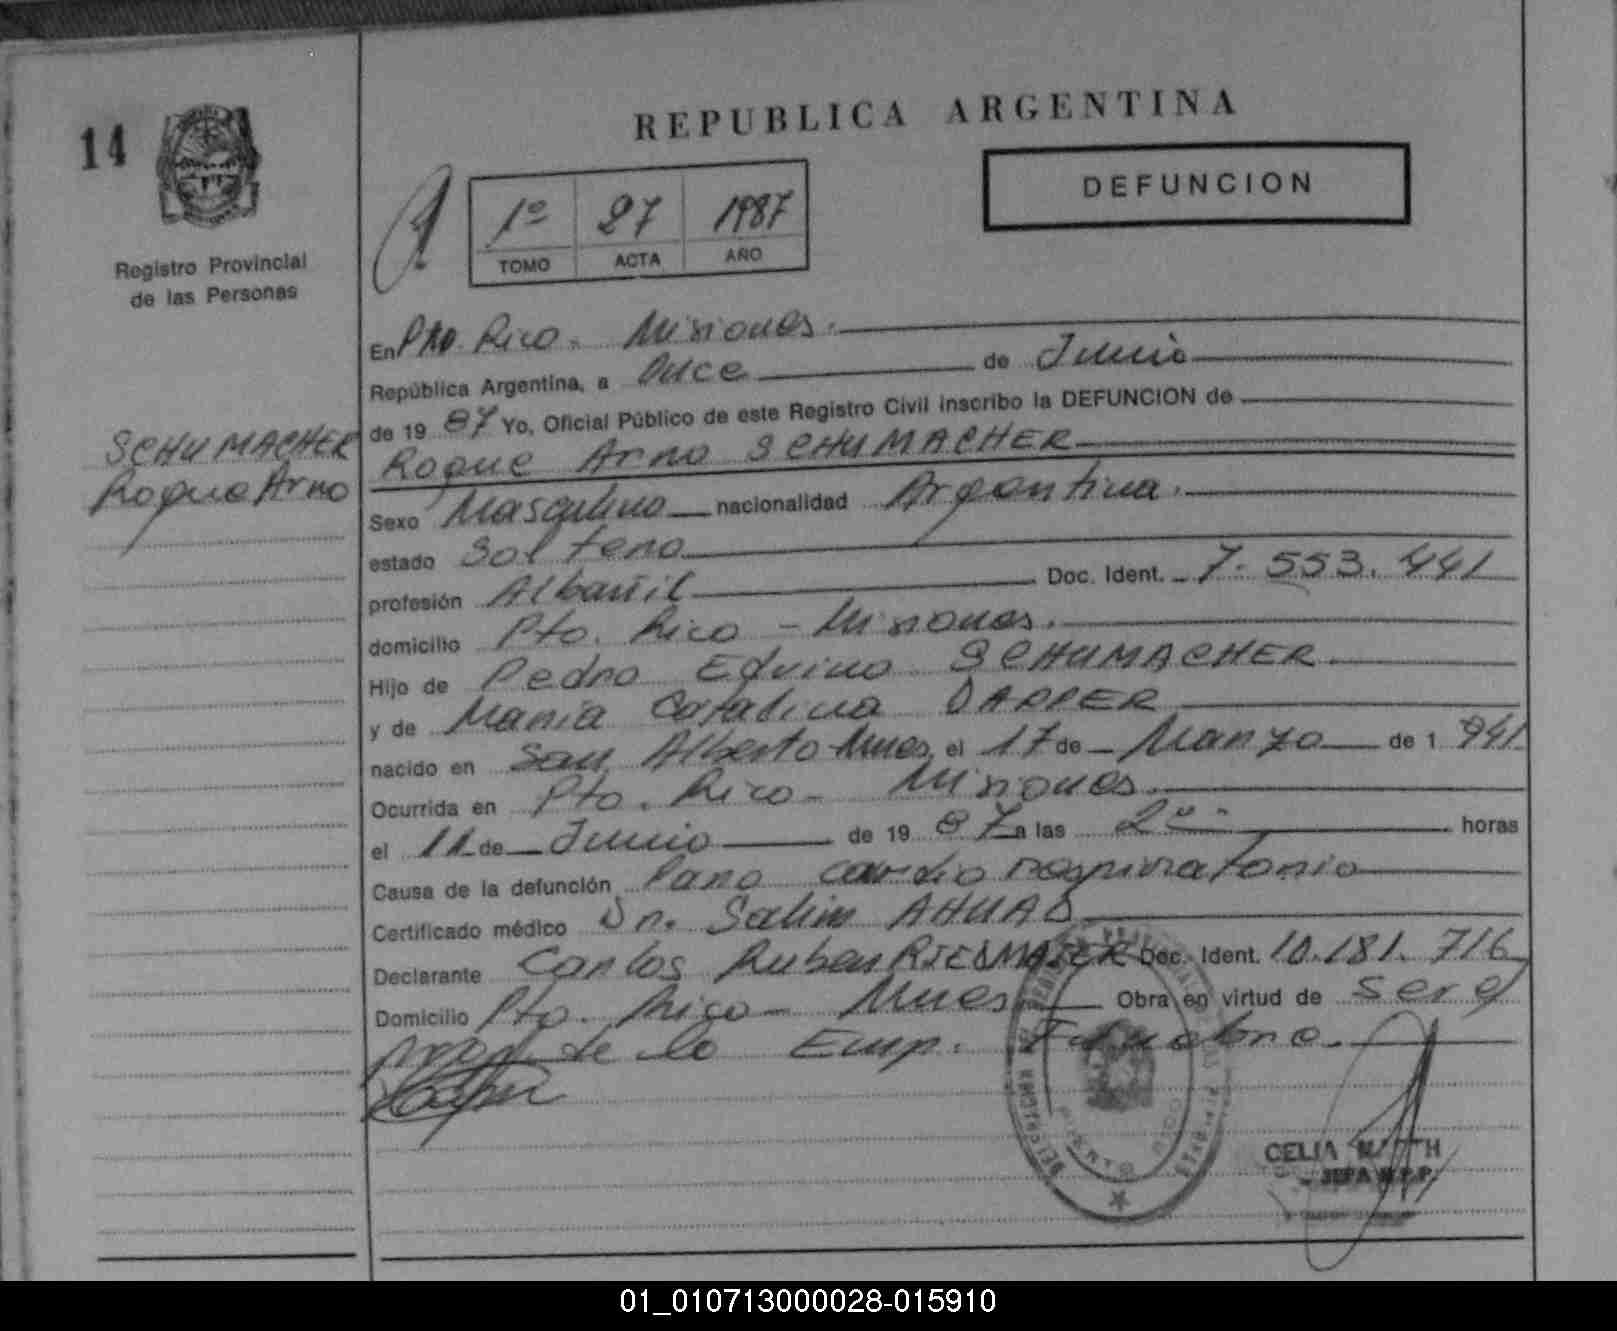 REPUBLICA ARGENTINA
14
DEFUNCION
1º 27 1987
TOMO ACTA AÑO
Registro Provincial
de las Personas
SCHUMACHER
Roque Arno
En Pto. Rico - Misiones.
República Argentina, a Once de Junio
de 19 87 Yo, Oficial Público de este Registro Civil inscribo la DEFUNCION de
Roque Arno SCHUMACHER
Sexo Masculino nacionalidad Argentina.
estado Soltero
profesión Albañil Doc. Ident. 7.553.441
domicilio Pto. Rico - Misiones.
Hijo de Pedro Edvino SCHUMACHER
y de Maria Catalina DAPPER
nacido en San Alberto Mnes el 17 de Marzo de 1 941
Ocurrida en Pto. Rico - Misiones.
el 11 de Junio de 19 87 a las horas
Causa de la defunción Paro cardio respiratorio
Certificado médico Dr. Salim AHUAD
Declarante Carlos Ruben Doc. Ident. 10.181.716
Domicilio Pto. Rico - Mnes Obra en virtud de ser el
prop. de la Emp. Funebre.
PUERTO RICO
CELIA
JEFA R.P.P.
01_010713000028-015910